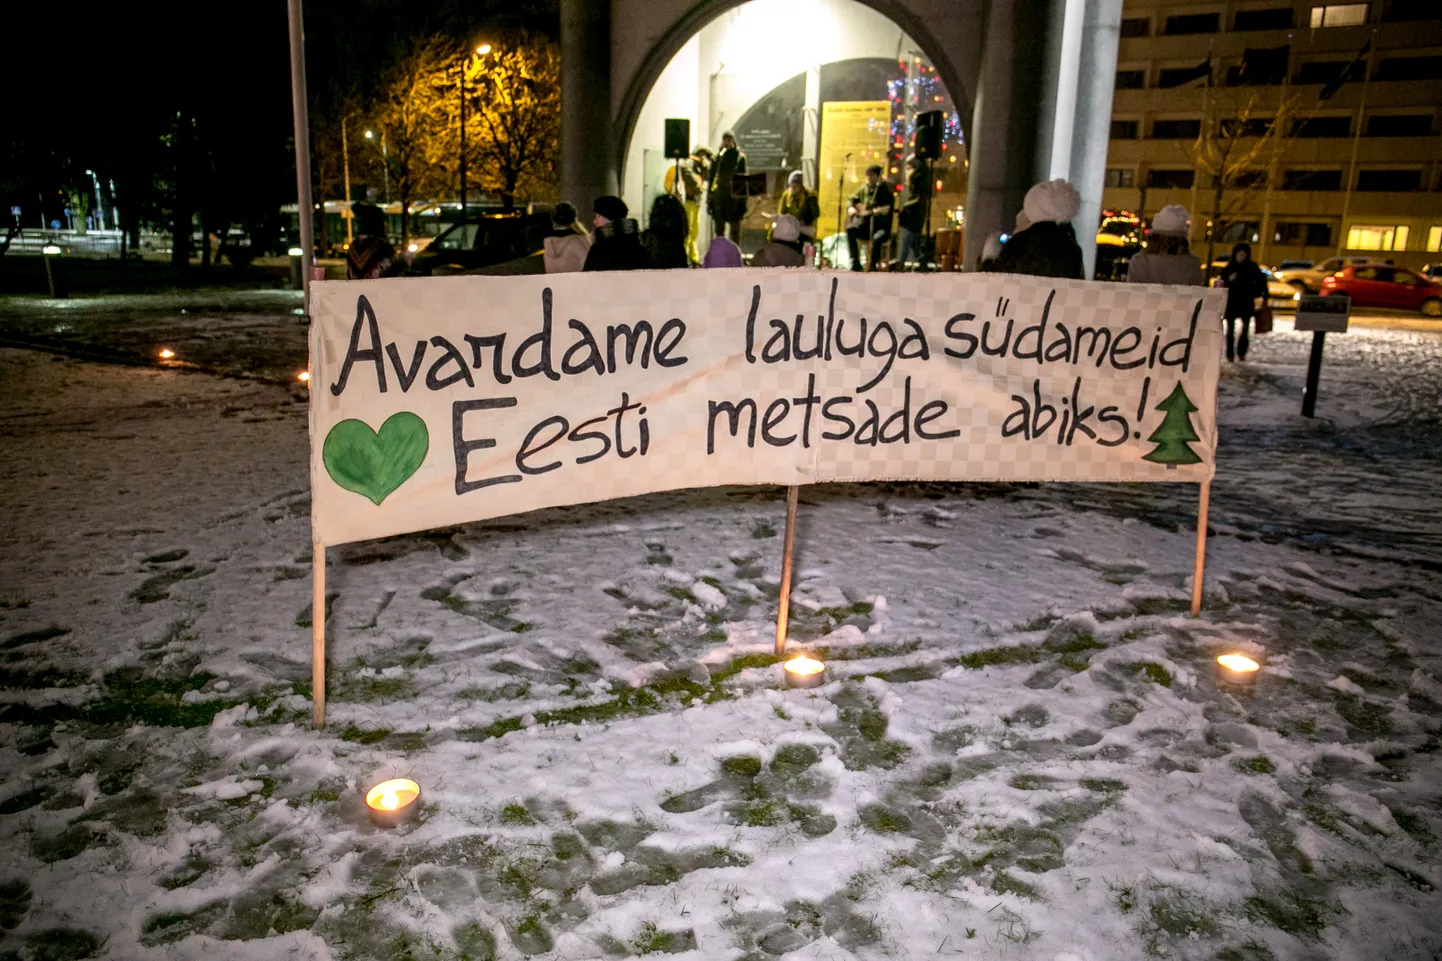 Avardame lauluga südameid
Eesti metsade abiks!